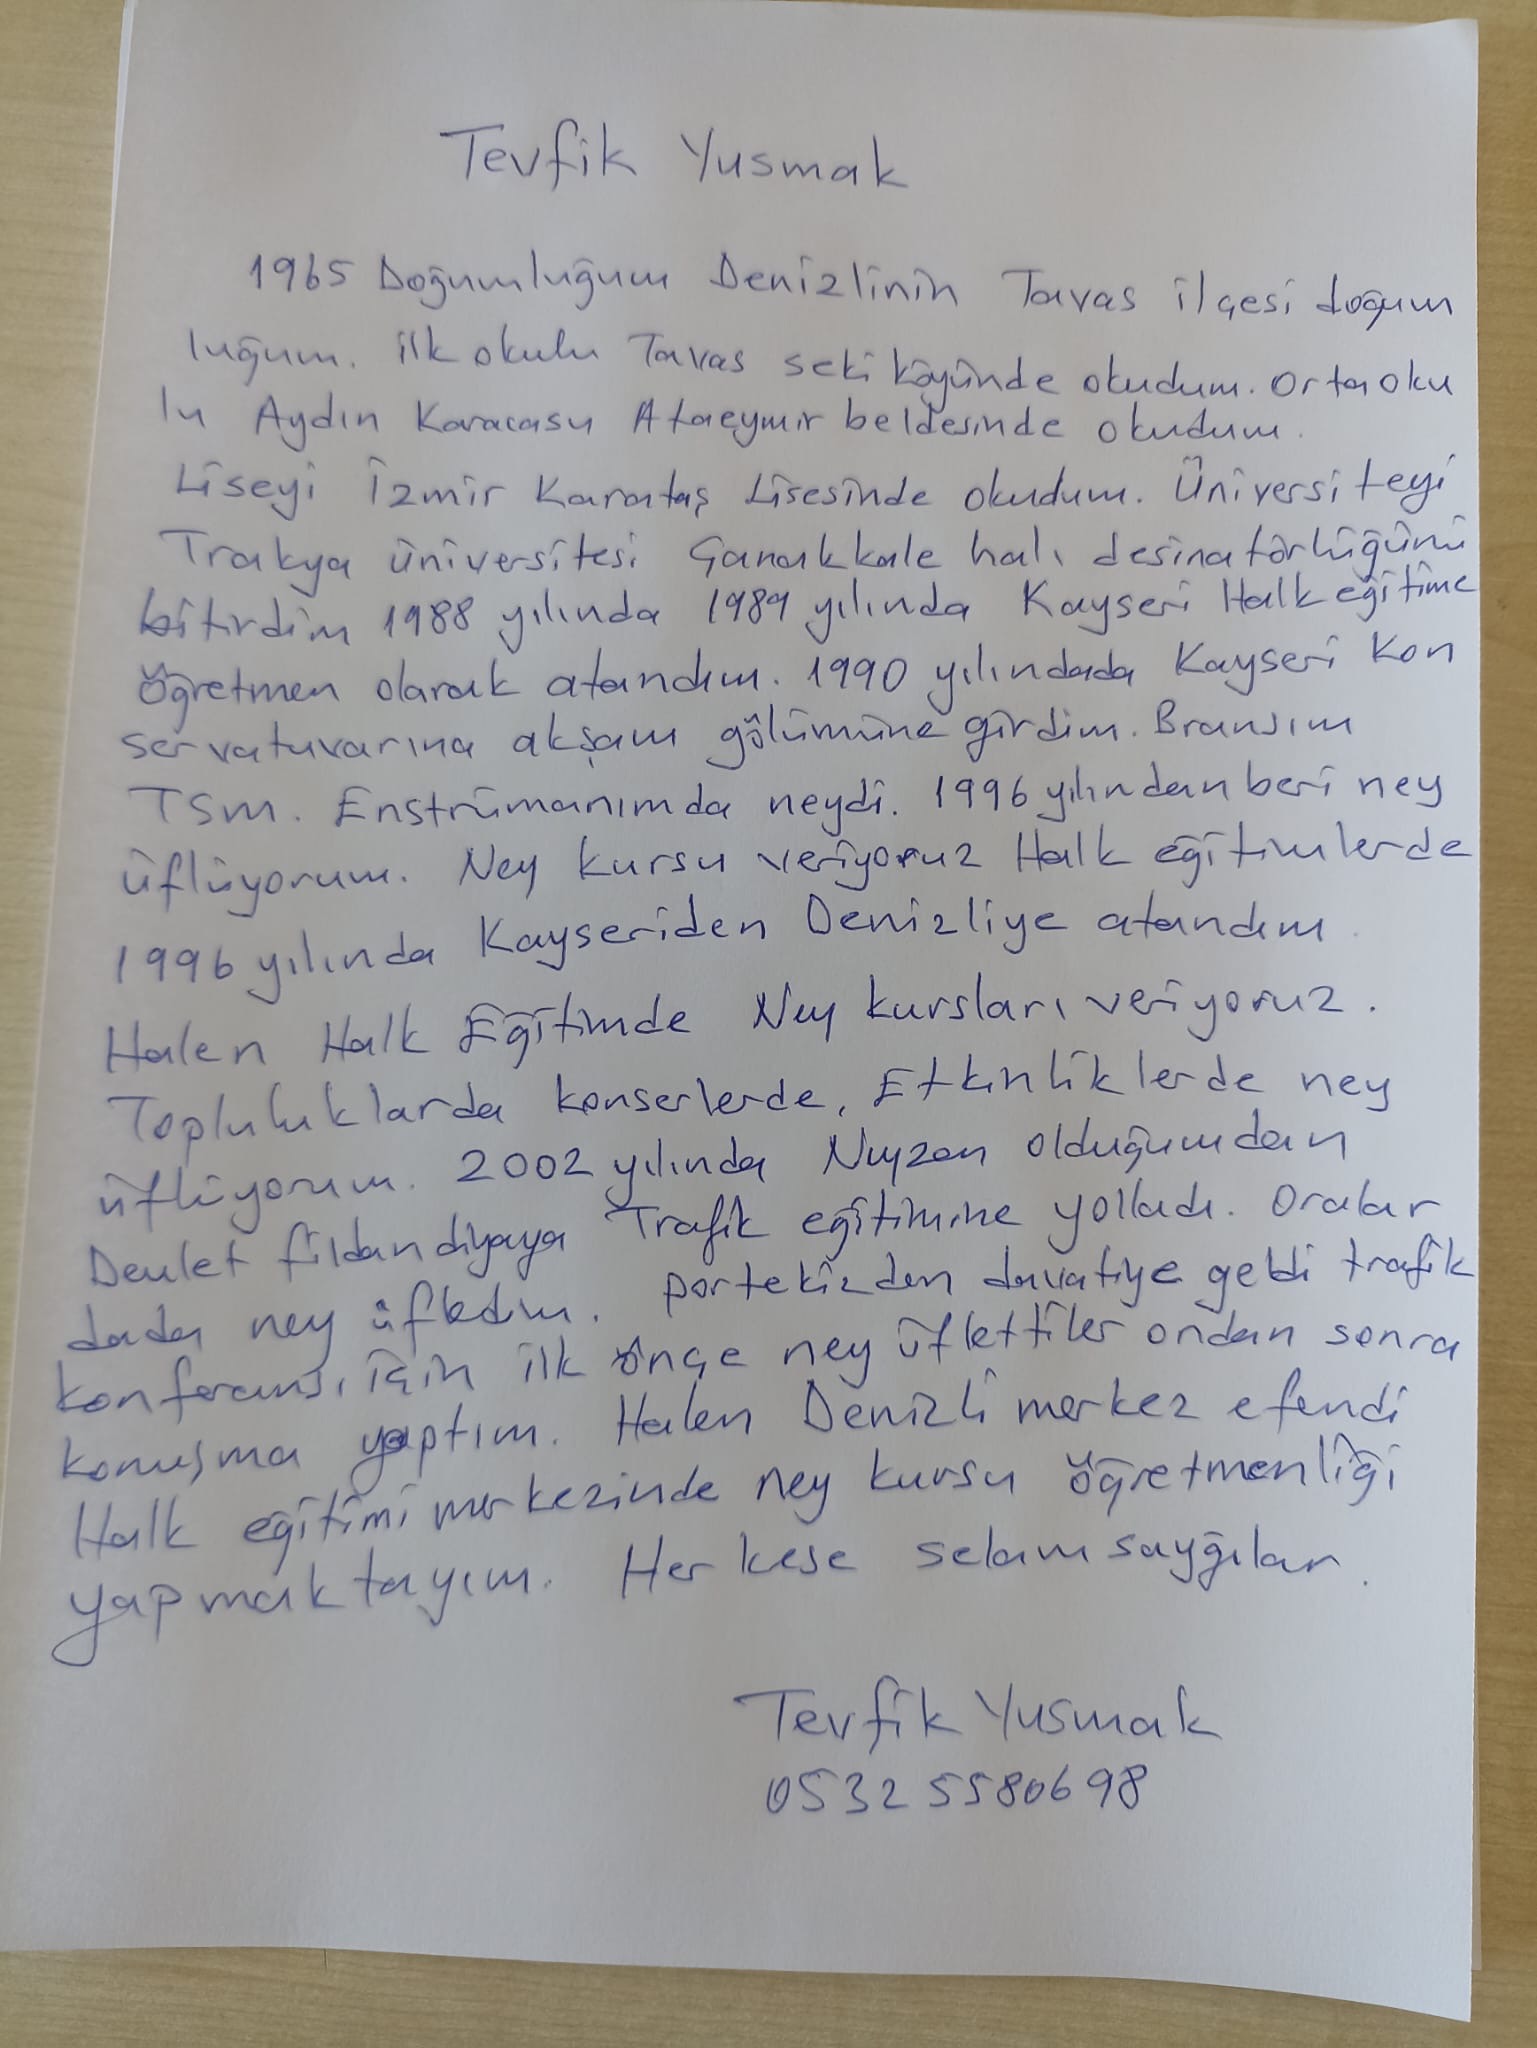 Tevfik Yusmak
1965 Doğumluğum Denizlinin Tavas ilçesi doğum
luğum. ilk okulu Tavas seki köyünde okudum. Orta oku
lu Aydın Karacasu Ataeymir beldesinde okudum.
Liseyi İzmir Karataş Lisesinde okudum. Üniversiteyi
Trakya üniversitesi Çanakkale halı desinatörlüğünü
bitirdim 1988 yılında 1989 yılında Kayseri Halk eğitime
öğretmen olarak atandım. 1990 yılındada Kayseri Kon
servatuvarına akşam gölümüne girdim. Bransım
TSM. Enstrümanımda neydi. 1996 yılından beri ney
üflüyorum. Ney kursu veriyoruz Halk eğitimlerde
1996 yılında Kayseriden Denizliye atandım.
Halen Halk Eğitimde Ney kursları veriyoruz.
Topluluklarda konserlerde, Etkinliklerde ney
üflüyorum. 2002 yılında Neyzen olduğumdan
Devlet fildandiyaya Trafik eğitimine yolladı. Oralar
dada ney üfledim. portekizden davatiye geldi trafik
konferansı için ilk önçe ney üflettiler ondan sonra
konuşma yaptım. Halen Denizli merkez efendi
Halk eğitimi merkezinde ney kursu öğretmenliği
yapmaktayım. Herkese selam sayğılar.
Tevfik Yusmak
0532 5580698